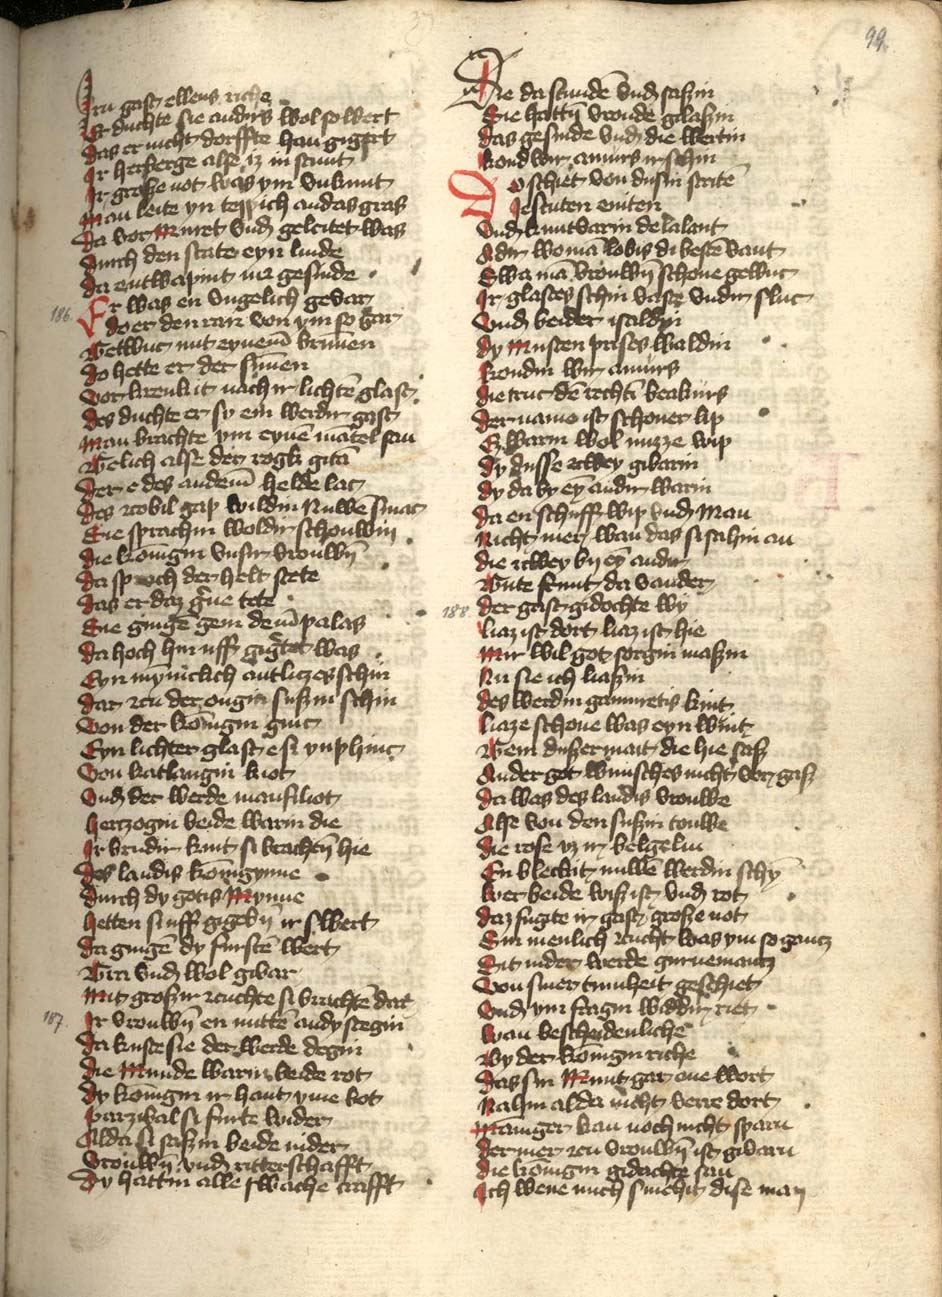 99
Irn gast ellens riche
Er duchte sie andirs wol so wert
Das er nicht dorffte han gigert
Ir herberge alse iz in stunt
Ir große not was ym unkunt
Man leite yn teppich an das gras
Da vor Muret und geleitet was
Durch den scate eyn linde
Da entwapint inz gesinde
186
Er was en ungelich gevar
do er den ram von ym so gar
Getwuc mit eyneme brunnen
Do hette er der sunnen
Vor krenkit nach ir lichten glast
Des duchte er sy ein werdir gast
Man brachte ym eynen mantel san
Gelich alse der rogk gitan
Der e des andern helde lac
Des zcobil gap wildin nuwen smac
Sie sprachin woldir schouwin
Die konigin unsir vrouwin
Da sprach der helt stete
Das er daz gerne tete
Sie gingen gein deme palas
Da hoch hin uff gigretet was
Eyn mynniclich antliczes schin
Dar zcu der ougin sußin schin
Von der konigin ginc
Eyn lichter glast e si ynphinc
Von katlangin kiot
Und der werde manfiliot
Hertzogin beide warin die
Ir brudir kint si brachten hie
Des landis konigynne
Durch dy gotis Mynne
Hetten si uff gigebin ir swert
Da gingen dy fursten wert
Gra und wol givar
Mit großir zcuchte si brachten dar
187
Ir vrouwin en mitten an dy stegin
Da kuste sie der werde degin
Die Munde warin beide rot
Dy konigin ir hant yme bot
Parzival si furte widir
Alda si saßin beide nider
Vrouwin und ritterschafft
Dy hattin alle swache crafft
Die da stunden und saßin
Sie hatten vroude gilaßin
Das gesinde und die wertin
Kondwir amurs ir schin
Do schiet von disin strite
Iescuten eniten
Und kunwarin de lalant
Adir wo ma lobis di besten vant
Swa man vrouwin schone gewuc
Ir glastes schin vaste undir sluc
Und beider isaldin
Dy Musten prises waldin
Kondin wir amurs
Die truc den rechten beakurs
Der name ist schoner lip
Ez warin wol nuzze wip
Dy disse zcwey gibarin
Dy da by eyn andir warin
Da en schuff wip und Man
Nicht mer wan das si sahin an
Die zcwey by eyn andir
Gute frunt da vander
188
Der gast gidochte wy
Liaz ist dort liaz ist hie
Mir wil got sorgin maßin
Nu sie ich liaßin
Des werdin gamuretis kint
Liaze schone was eyn wint
Gein dißer mait die hie saß
An der got wunsches nicht vor gaß
Da was des landis vrouwe
Alse von den sußin touwe
Die rose uz ir belgelin
En bleckit nuwen werdin schyn
Wer beide wiß ist und rot
Daz fugite ir gast große not
Sin menlich zcucht was ym so gancz
Sit nider werde gurnemancz
Von siner tumheit geschiet
Und ym fragin widdir riet
Wan bescheidenliche
By der konigin riche
Das sin Munt gar one wort
Nahin alda nicht verre dort
Maniger kan noch nicht sparn
Der mer zcu vrouwin ist givarn
Die konigin gidachte san
Ich wene mich smehit dise man